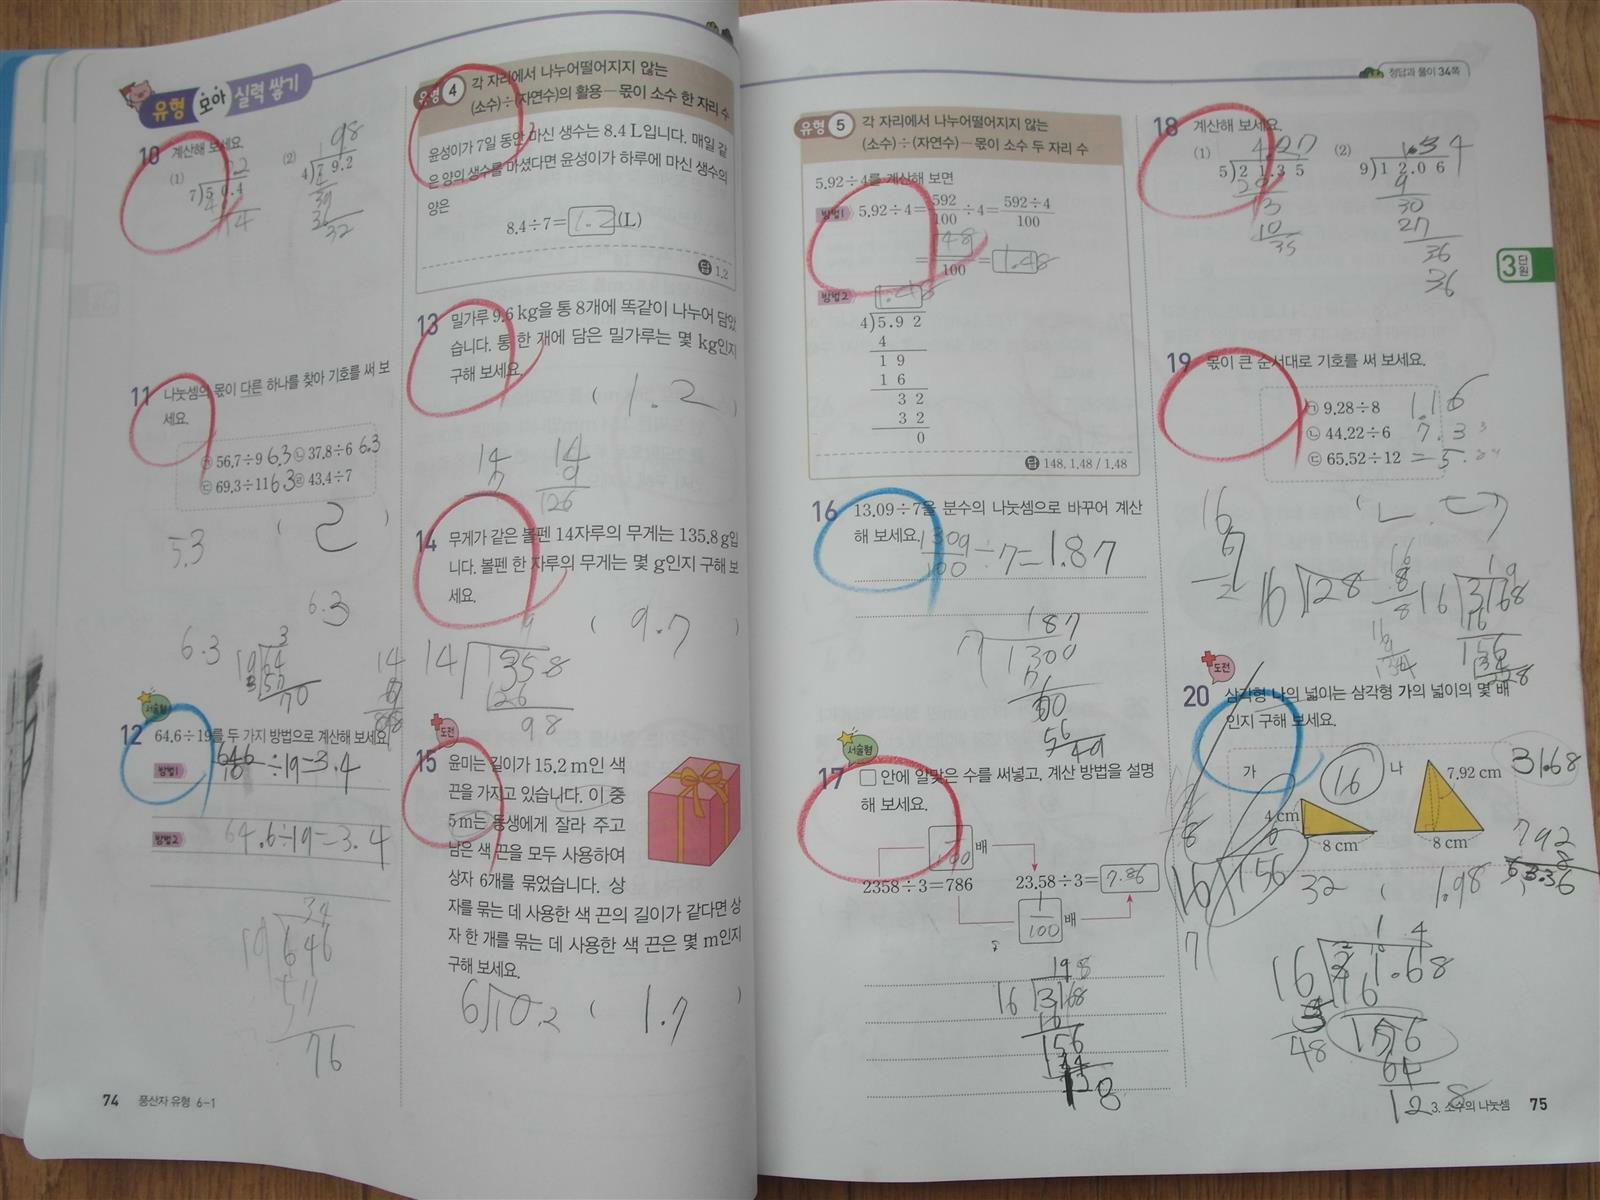 유형 모아 실력 쌓기
10 계산해 보세요.
(1)
7)5 0.4
(2)
1 9.8
11 나눗셈의 몫이 다른 하나를 찾아 기호를 써 보
세요.
㉠ 56.7÷9 6.3 ㉡ 37.8÷6 6.3
㉢ 69.3÷11 6.3 ㉣ 43.4÷7
( 2 )
5.3
6.3
6.3
서술형
12 64.6÷19를 두 가지 방법으로 계산해 보세요.
방법1
÷19=3.4
방법2 64.6÷19=3.4
34
19)646
57
76
74 풍산자 유형 6-1
유형 4 각 자리에서 나누어떨어지지 않는
(소수)÷(자연수)의 활용－몫이 소수 한 자리 수
윤성이가 7일 동안 마신 생수는 8.4 L입니다. 매일 같
은 양의 생수를 마셨다면 윤성이가 하루에 마신 생수의
양은
8.4÷7=1.2(L)
답 1.2
13 밀가루 9.6 kg을 통 8개에 똑같이 나누어 담았
습니다. 통 한 개에 담은 밀가루는 몇 kg인지
구해 보세요.
( 1.2 )
14 14
7 9
126
14 무게가 같은 볼펜 14자루의 무게는 135.8 g입
니다. 볼펜 한 자루의 무게는 몇 g인지 구해 보
세요.
( 9.7 )
14)1358
126
98
도전
15 윤미는 길이가 15.2 m인 색
끈을 가지고 있습니다. 이 중
5 m는 동생에게 잘라 주고
남은 색 끈을 모두 사용하여
상자 6개를 묶었습니다. 상
자를 묶는 데 사용한 색 끈의 길이가 같다면 상
자 한 개를 묶는 데 사용한 색 끈은 몇 m인지
구해 보세요.
6)10.2 ( 1.7 )
유형 5 각 자리에서 나누어떨어지지 않는
(소수)÷(자연수)－몫이 소수 두 자리 수
5.92÷4를 계산해 보면
방법1 5.92÷4=592/100÷4=592÷4/100
=148/100=1.48
방법2 1.48
4)5.9 2
4
1 9
1 6
3 2
3 2
0
답 148, 1.48 / 1.48
16 13.09÷7을 분수의 나눗셈으로 바꾸어 계산
해 보세요.
1309/100÷7=1.87
187
서술형
17 □ 안에 알맞은 수를 써넣고, 계산 방법을 설명
해 보세요.
1/100 배
2358÷3=786 23.58÷3=7.86
1/100 배
198
16)3168
16
156
정답과 풀이 34쪽
18 계산해 보세요.
(1) 4.27
5)2 1.3 5
20
13
10
35
(2) 1.34
9)1 2.0 6
9
30
27
36
36
3단원
19 몫이 큰 순서대로 기호를 써 보세요.
㉠ 9.28÷8 1.16
㉡ 44.22÷6 7.3
㉢ 65.52÷12 =5.
16)128
도전
20 삼각형 나의 넓이는 삼각형 가의 넓이의 몇 배
인지 구해 보세요.
가 16 나 31.68
7.92 cm
4 cm
8 cm 8 cm
792
8
32 ( 1.98
16)156
48
64
128
3. 소수의 나눗셈 75